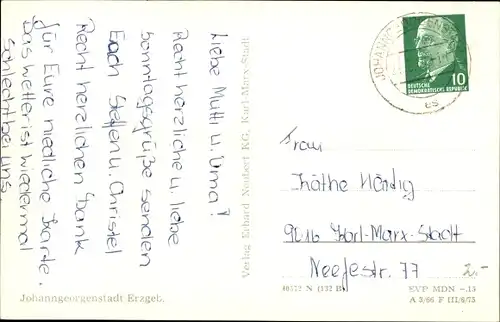 Liebe Mutti u. Uma!
Recht herzliche u. liebe
Sonntagsgrüße senden
Euch Steffen u. Christel
Recht herzlichen Dank
für Eure niedliche Karte.
Das Wetter ist wiedermal
schlecht bei uns.
Johanngeorgenstadt Erzgeb.
Verlag Erhard Neubert KG, Karl-Marx-Stadt
10
DEUTSCHE
DEMOKRATISCHE REPUBLIK
Frau
Käthe Härdig
9016 Karl-Marx-Stadt
Neefestr. 77
2,-
EVP MDN –.15
A 3/66 F III/6/75